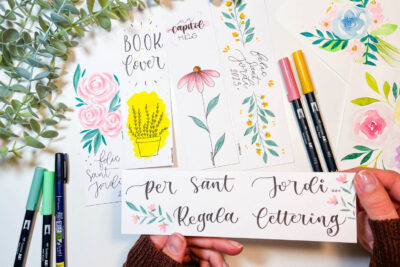 BOOK
lover
capítol
més
feliç
sant
jordi
2023
feliç
sant
jordi
per Sant Jordi...
Regala lettering